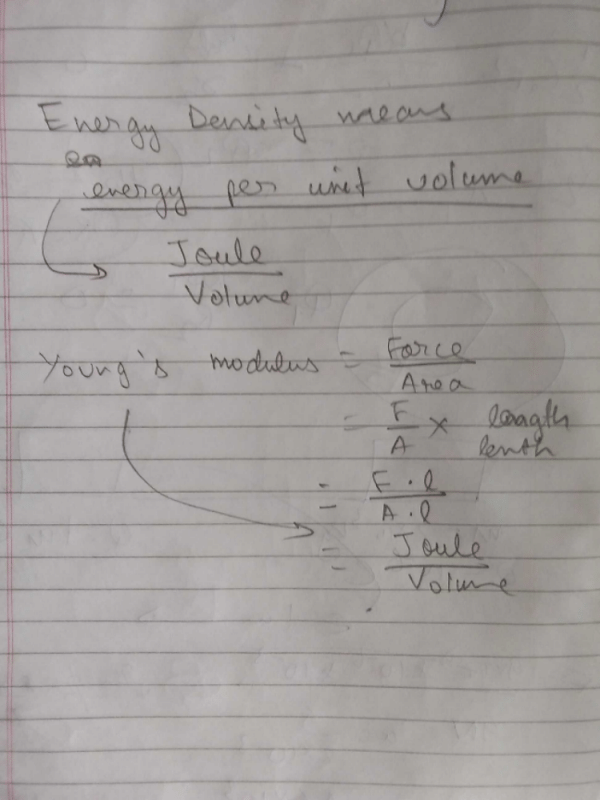 Energy Density means
energy per unit volume
Joule
Volume
Young's modulus = Force
Area
= F/A × length
lenth
= F·l
A·l
= Joule
Volume